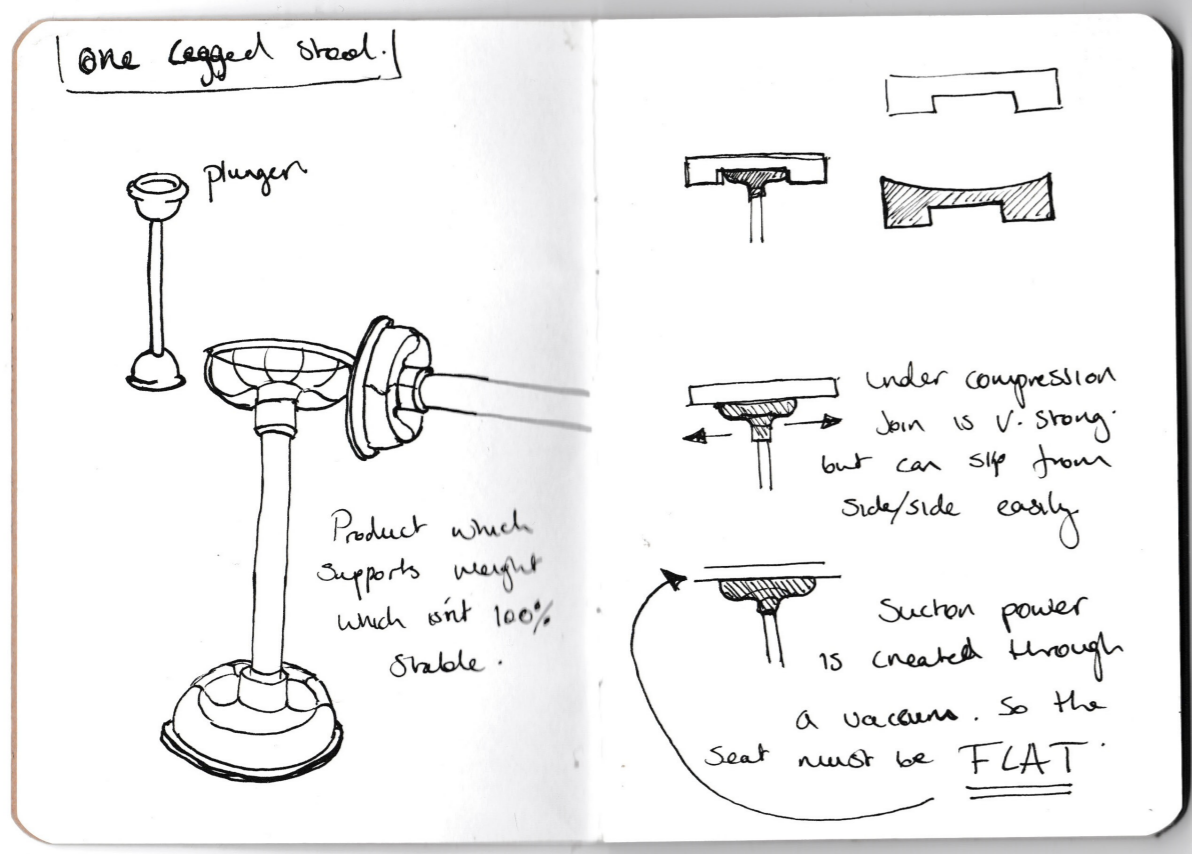 one legged stool.
plunger
Product which
supports weight
which isn't 100%
stable.
under compression
Join is V. strong.
but can slip from
side/side easily
Suction power
is created through
a vacuum. So the
seat must be FLAT.